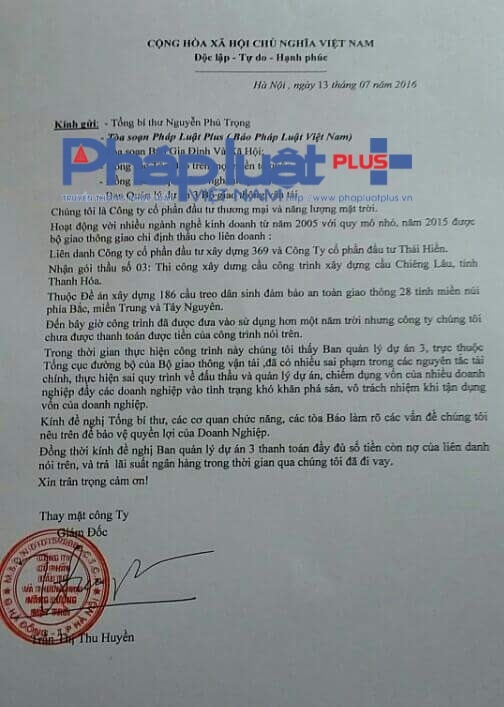 CỘNG HÒA XÃ HỘI CHỦ NGHĨA VIỆT NAM
Độc lập - Tự do - Hạnh phúc
Hà Nội , ngày 13 tháng 07 năm 2016
Kính gửi: - Tổng bí thư Nguyễn Phú Trọng
- Tòa soạn Pháp Luật Plus ( Báo Pháp Luật Việt Nam)
Tòa soạn Báo Gia Đình Và Xã Hội;
Pháp luật PLUS
www.phapluatplus.vn
- Ban Quản lý dự án 3 Bộ giao thông vận tải
Chúng tôi là Công ty cổ phần đầu tư thương mại và năng lượng mặt trời.
Hoạt động với nhiều ngành nghề kinh doanh từ năm 2005 với quy mô nhỏ, năm 2015 được
bộ giao thông giao chỉ định thầu cho liên doanh :
Liên danh Công ty cổ phần đầu tư xây dựng 369 và Công ty cổ phần đầu tư Thái Hiền.
Nhận gói thầu số 03: Thi công xây dựng cầu công trình xây dựng cầu Chiềng Lầu, tỉnh
Thanh Hóa.
Thuộc Đề án xây dựng 186 cầu treo dân sinh đảm bảo an toàn giao thông 28 tỉnh miền núi
phía Bắc, miền Trung và Tây Nguyên.
Đến bây giờ công trình đã được đưa vào sử dụng hơn một năm trời nhưng công ty chúng tôi
chưa được thanh toán được tiền của công trình nói trên.
Trong thời gian thực hiện công trình này chúng tôi thấy Ban quản lý dự án 3, trực thuộc
Tổng cục đường bộ của Bộ giao thông vận tải ,đã có nhiều sai phạm trong các nguyên tắc tài
chính, thực hiện sai quy trình về đấu thầu và quản lý dự án, chiếm dụng vốn của nhiều doanh
nghiệp đẩy các doanh nghiệp vào tình trạng khó khăn phá sản, vô trách nhiệm khi tận dụng
vốn của doanh nghiệp.
Kính đề nghị Tổng bí thư, các cơ quan chức năng, các tòa Báo làm rõ các vấn đề chúng tôi
nêu trên để bảo vệ quyền lợi của Doanh Nghiệp.
Đồng thời kính đề nghị Ban quản lý dự án 3 thanh toán đầy đủ số tiền còn nợ của liên danh
nói trên, và trả lãi suất ngân hàng trong thời gian qua chúng tôi đã đi vay.
Xin trân trọng cảm ơn!
Thay mặt công Ty
Giám Đốc
CÔNG TY
CỔ PHẦN
ĐẦU TƯ
Trần Thị Thu Huyền